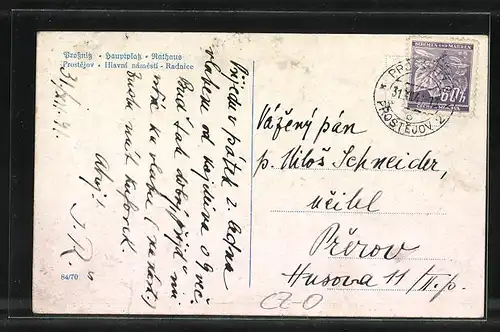 Proßnitz - Hauptplatz - Rathaus
Prostějov - Hlavní náměstí - Radnice
31/XII. 41.
Přijedu v pátek 2. ledna
vlakem od Kojetína o 9 več.
Buď tak dobrý, přijď mi
Budu mít kufórek.
Ahoj!
J. R.
84/70
BÖHMEN UND MÄHREN
60h
PROSTĚJOV 2
Vážený pán
p. Miloš Schneider,
učitel
Přerov
Husova 11/II. p.